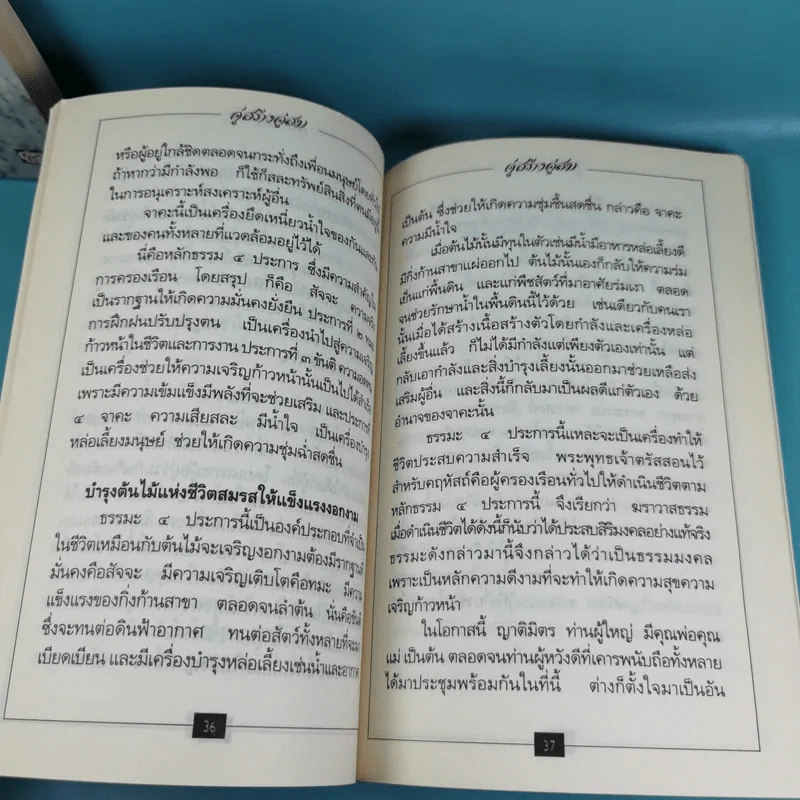 คู่สร้างคู่สม
หรือผู้อยู่ใกล้ชิดตลอดจนกระทั่งถึงเพื่อนมนุษย์โดย
ถ้าหากว่ามีกำลังพอ ก็ใช้ก็สละทรัพย์สินสิ่งที่ตนมี
ในการอนุเคราะห์สงเคราะห์ผู้อื่น
จาคะนี้เป็นเครื่องยึดเหนี่ยวน้ำใจของกันและกัน
และของคนทั้งหลายที่แวดล้อมอยู่ไว้ได้
นี่คือหลักธรรม ๔ ประการ ซึ่งมีความสำคัญ
การครองเรือน โดยสรุป ก็คือ สัจจะ ความ
เป็นรากฐานให้เกิดความมั่นคงยั่งยืน ประการที่ ๒ ทมะ
การฝึกฝนปรับปรุงตน เป็นเครื่องนำไปสู่ความเจริญ
ก้าวหน้าในชีวิตและการงาน ประการที่ ๓ ขันติ ความอดทน
เป็นเครื่องช่วยให้ความเจริญก้าวหน้านั้นเป็นไปได้สำเร็จ
เพราะมีความเข้มแข็งมีพลังที่จะช่วยเสริม และประการที่
๔ จาคะ ความเสียสละ มีน้ำใจ เป็นเครื่องบำรุง
หล่อเลี้ยงมนุษย์ ช่วยให้เกิดความชุ่มฉ่ำสดชื่น
บำรุงต้นไม้แห่งชีวิตสมรสให้แข็งแรงงอกงาม
ธรรมะ ๔ ประการนี้เป็นองค์ประกอบที่จำเป็น
ในชีวิตเหมือนกับต้นไม้จะเจริญงอกงามต้องมีรากฐานที่
มั่นคงคือสัจจะ มีความเจริญเติบโตคือทมะ มีความ
แข็งแรงของกิ่งก้านสาขา ตลอดจนลำต้น นั่นคือขันติ
ซึ่งจะทนต่อดินฟ้าอากาศ ทนต่อสัตว์ทั้งหลายที่จะมา
เบียดเบียน และมีเครื่องบำรุงหล่อเลี้ยงเช่นน้ำและอากาศ
36
คู่สร้างคู่สม
เป็นต้น ซึ่งช่วยให้เกิดความชุ่มชื้นสดชื่น กล่าวคือ จาคะ
ความมีน้ำใจ
เมื่อต้นไม้นั้นมีทุนในตัวเช่นมีน้ำมีอาหารหล่อเลี้ยงดี
มีกิ่งก้านสาขาแผ่ออกไป ต้นไม้นั้นเองก็กลับให้ความร่ม
เย็นแก่พื้นดิน และแก่พืชสัตว์ที่มาอาศัยร่มเงา ตลอด
จนช่วยรักษาน้ำในพื้นดินนี้ไว้ด้วย เช่นเดียวกับคนเรา
นั้นเมื่อได้สร้างเนื้อสร้างตัวโดยกำลังและเครื่องหล่อ
เลี้ยงขึ้นแล้ว ก็ไม่ได้มีกำลังแต่เพียงตัวเองเท่านั้น แต่
กลับเอากำลังและสิ่งบำรุงเลี้ยงนั้นออกมาช่วยเหลือส่ง
เสริมผู้อื่น และสิ่งนี้ก็กลับมาเป็นผลดีแก่ตัวเอง ด้วย
อำนาจของจาคะนั้น
ธรรมะ ๔ ประการนี้แหละจะเป็นเครื่องทำให้
ชีวิตประสบความสำเร็จ พระพุทธเจ้าตรัสสอนไว้
สำหรับคฤหัสถ์คือผู้ครองเรือนทั่วไปให้ดำเนินชีวิตตาม
หลักธรรม ๔ ประการนี้ จึงเรียกว่า ฆราวาสธรรม
เมื่อดำเนินชีวิตได้ดังนี้ก็นับว่าได้ประสบสิริมงคลอย่างแท้จริง
ธรรมะดังกล่าวมานี้จึงกล่าวได้ว่าเป็นธรรมมงคล
เพราะเป็นหลักความดีงามที่จะทำให้เกิดความสุขความ
เจริญก้าวหน้า
ในโอกาสนี้ ญาติมิตร ท่านผู้ใหญ่ มีคุณพ่อคุณ
แม่ เป็นต้น ตลอดจนท่านผู้หวังดีที่เคารพนับถือทั้งหลาย
ได้มาประชุมพร้อมกันในที่นี้ ต่างก็ตั้งใจมาเป็นอัน
37